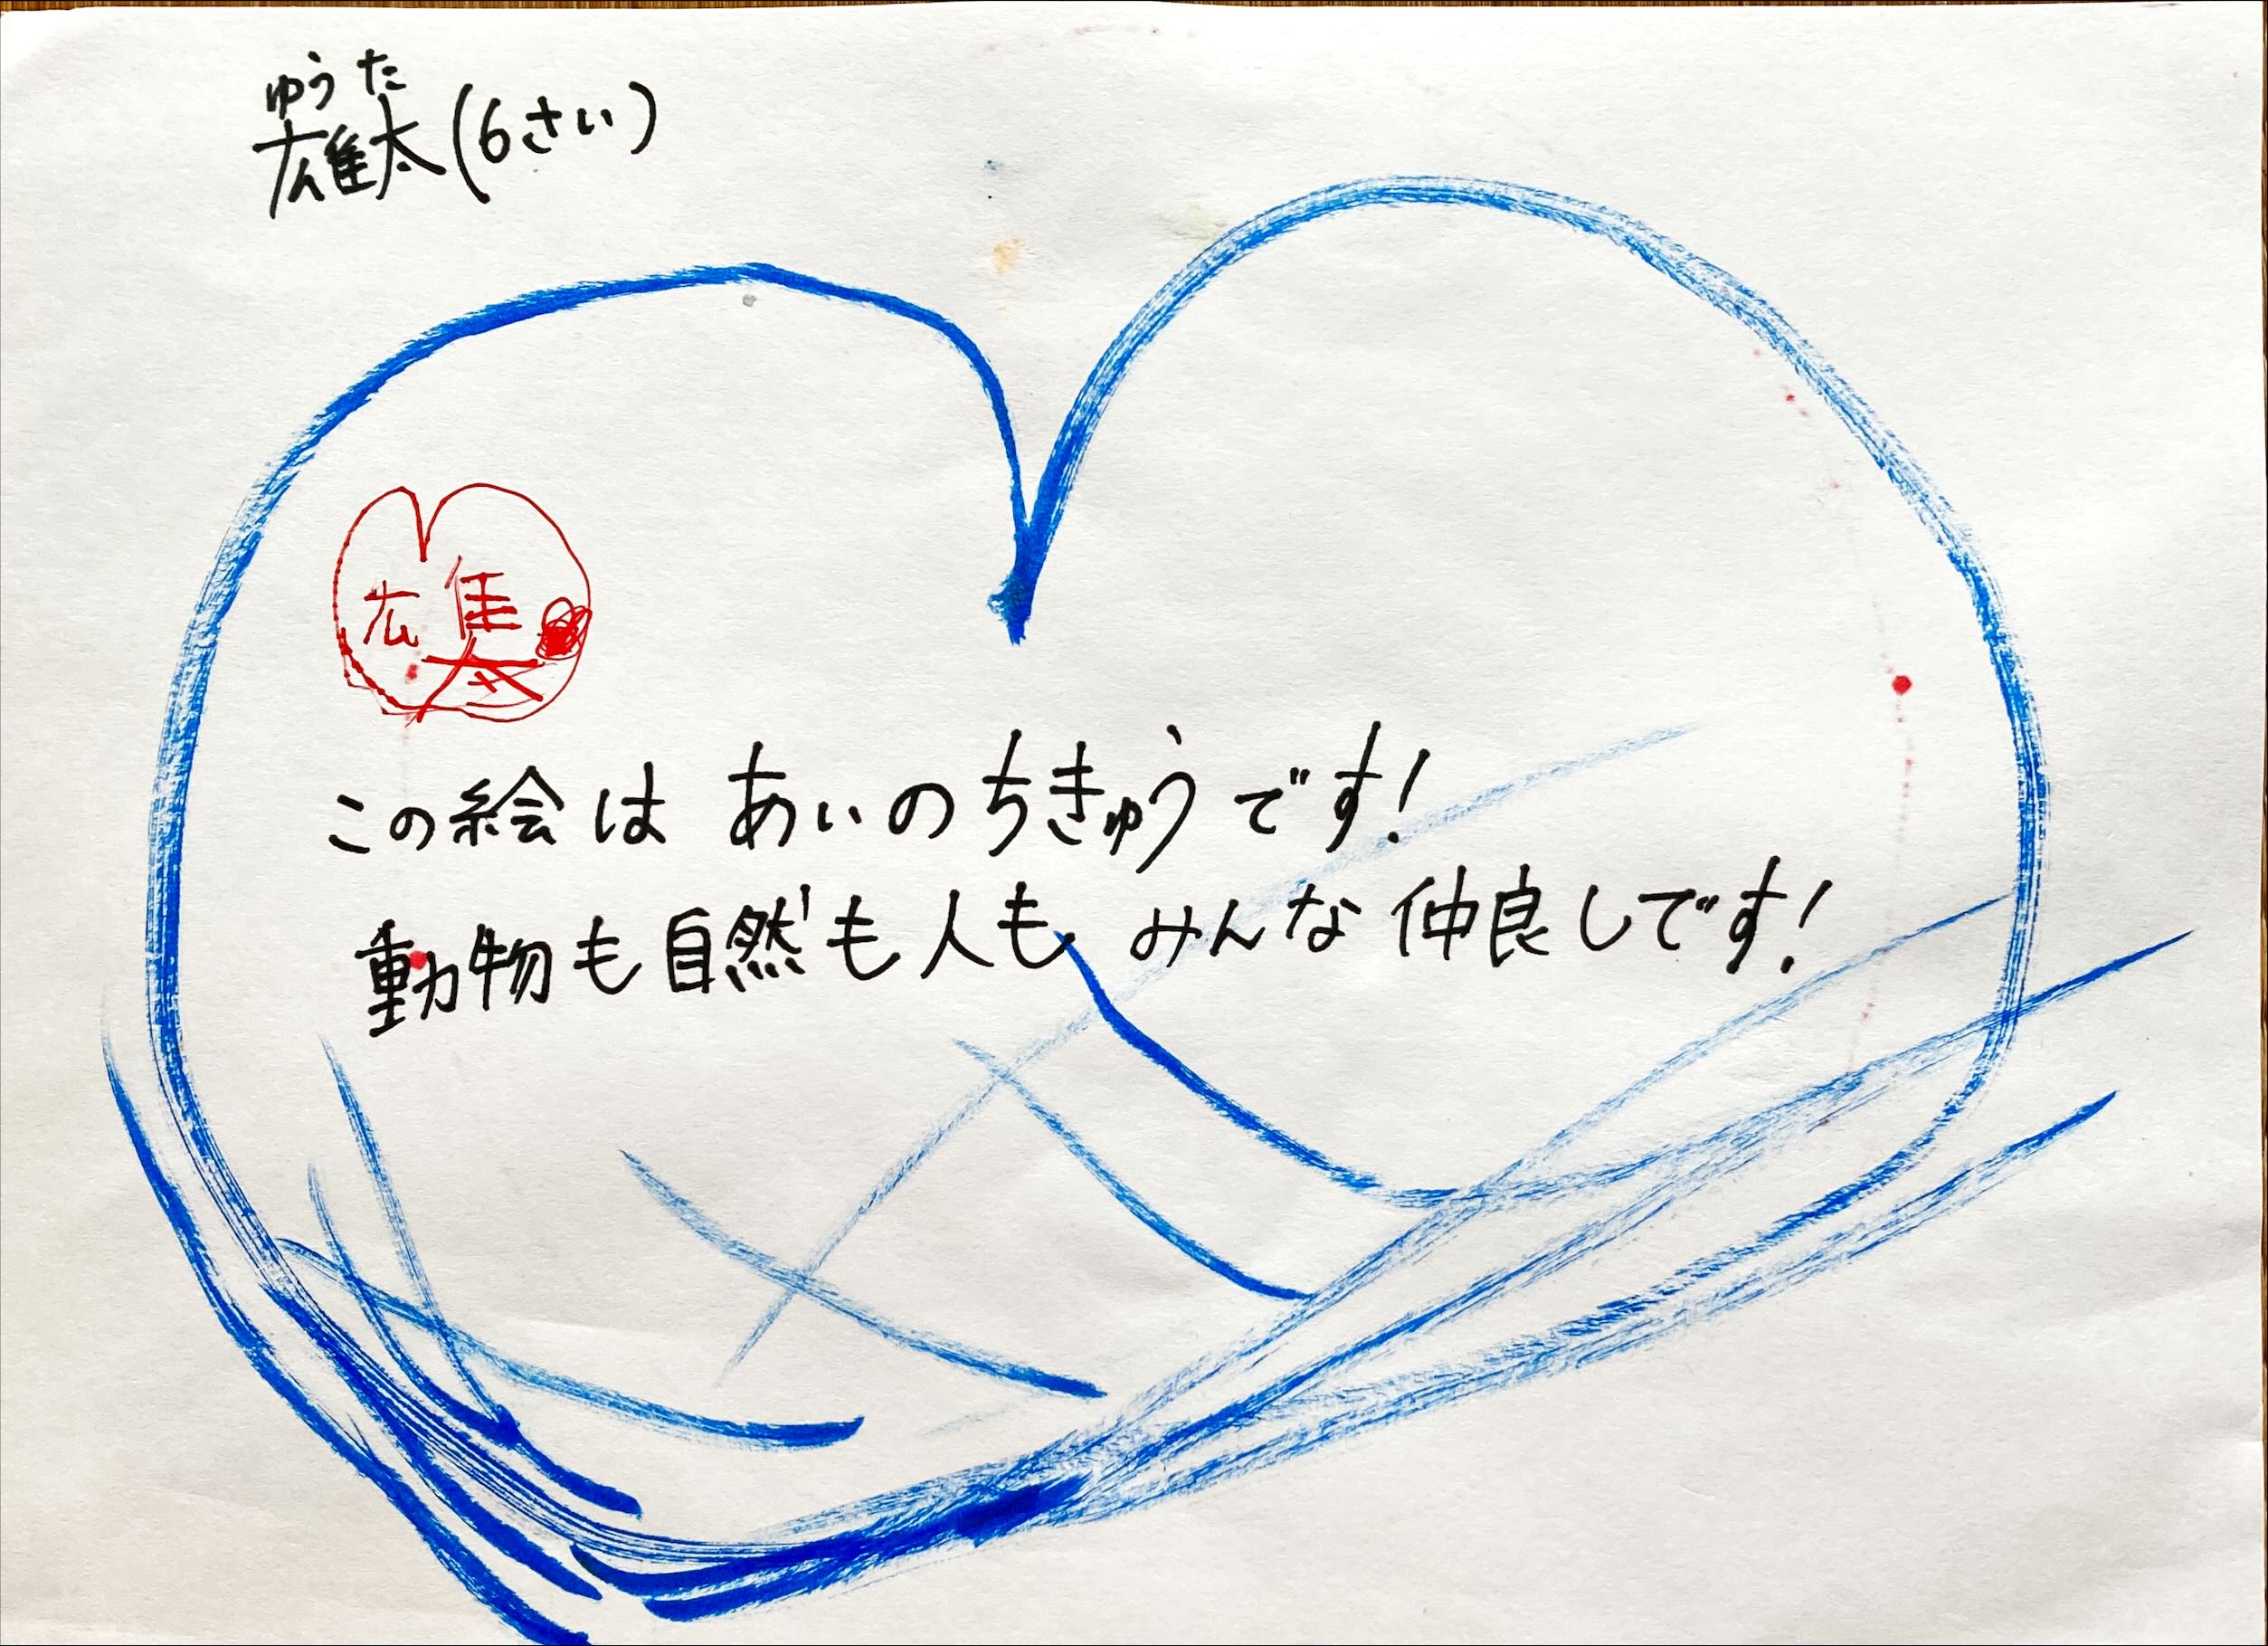 ゆうた
雄太(6さい)
雄太
この絵は あいのちきゅうです!
動物も自然も人も みんな仲良しです!